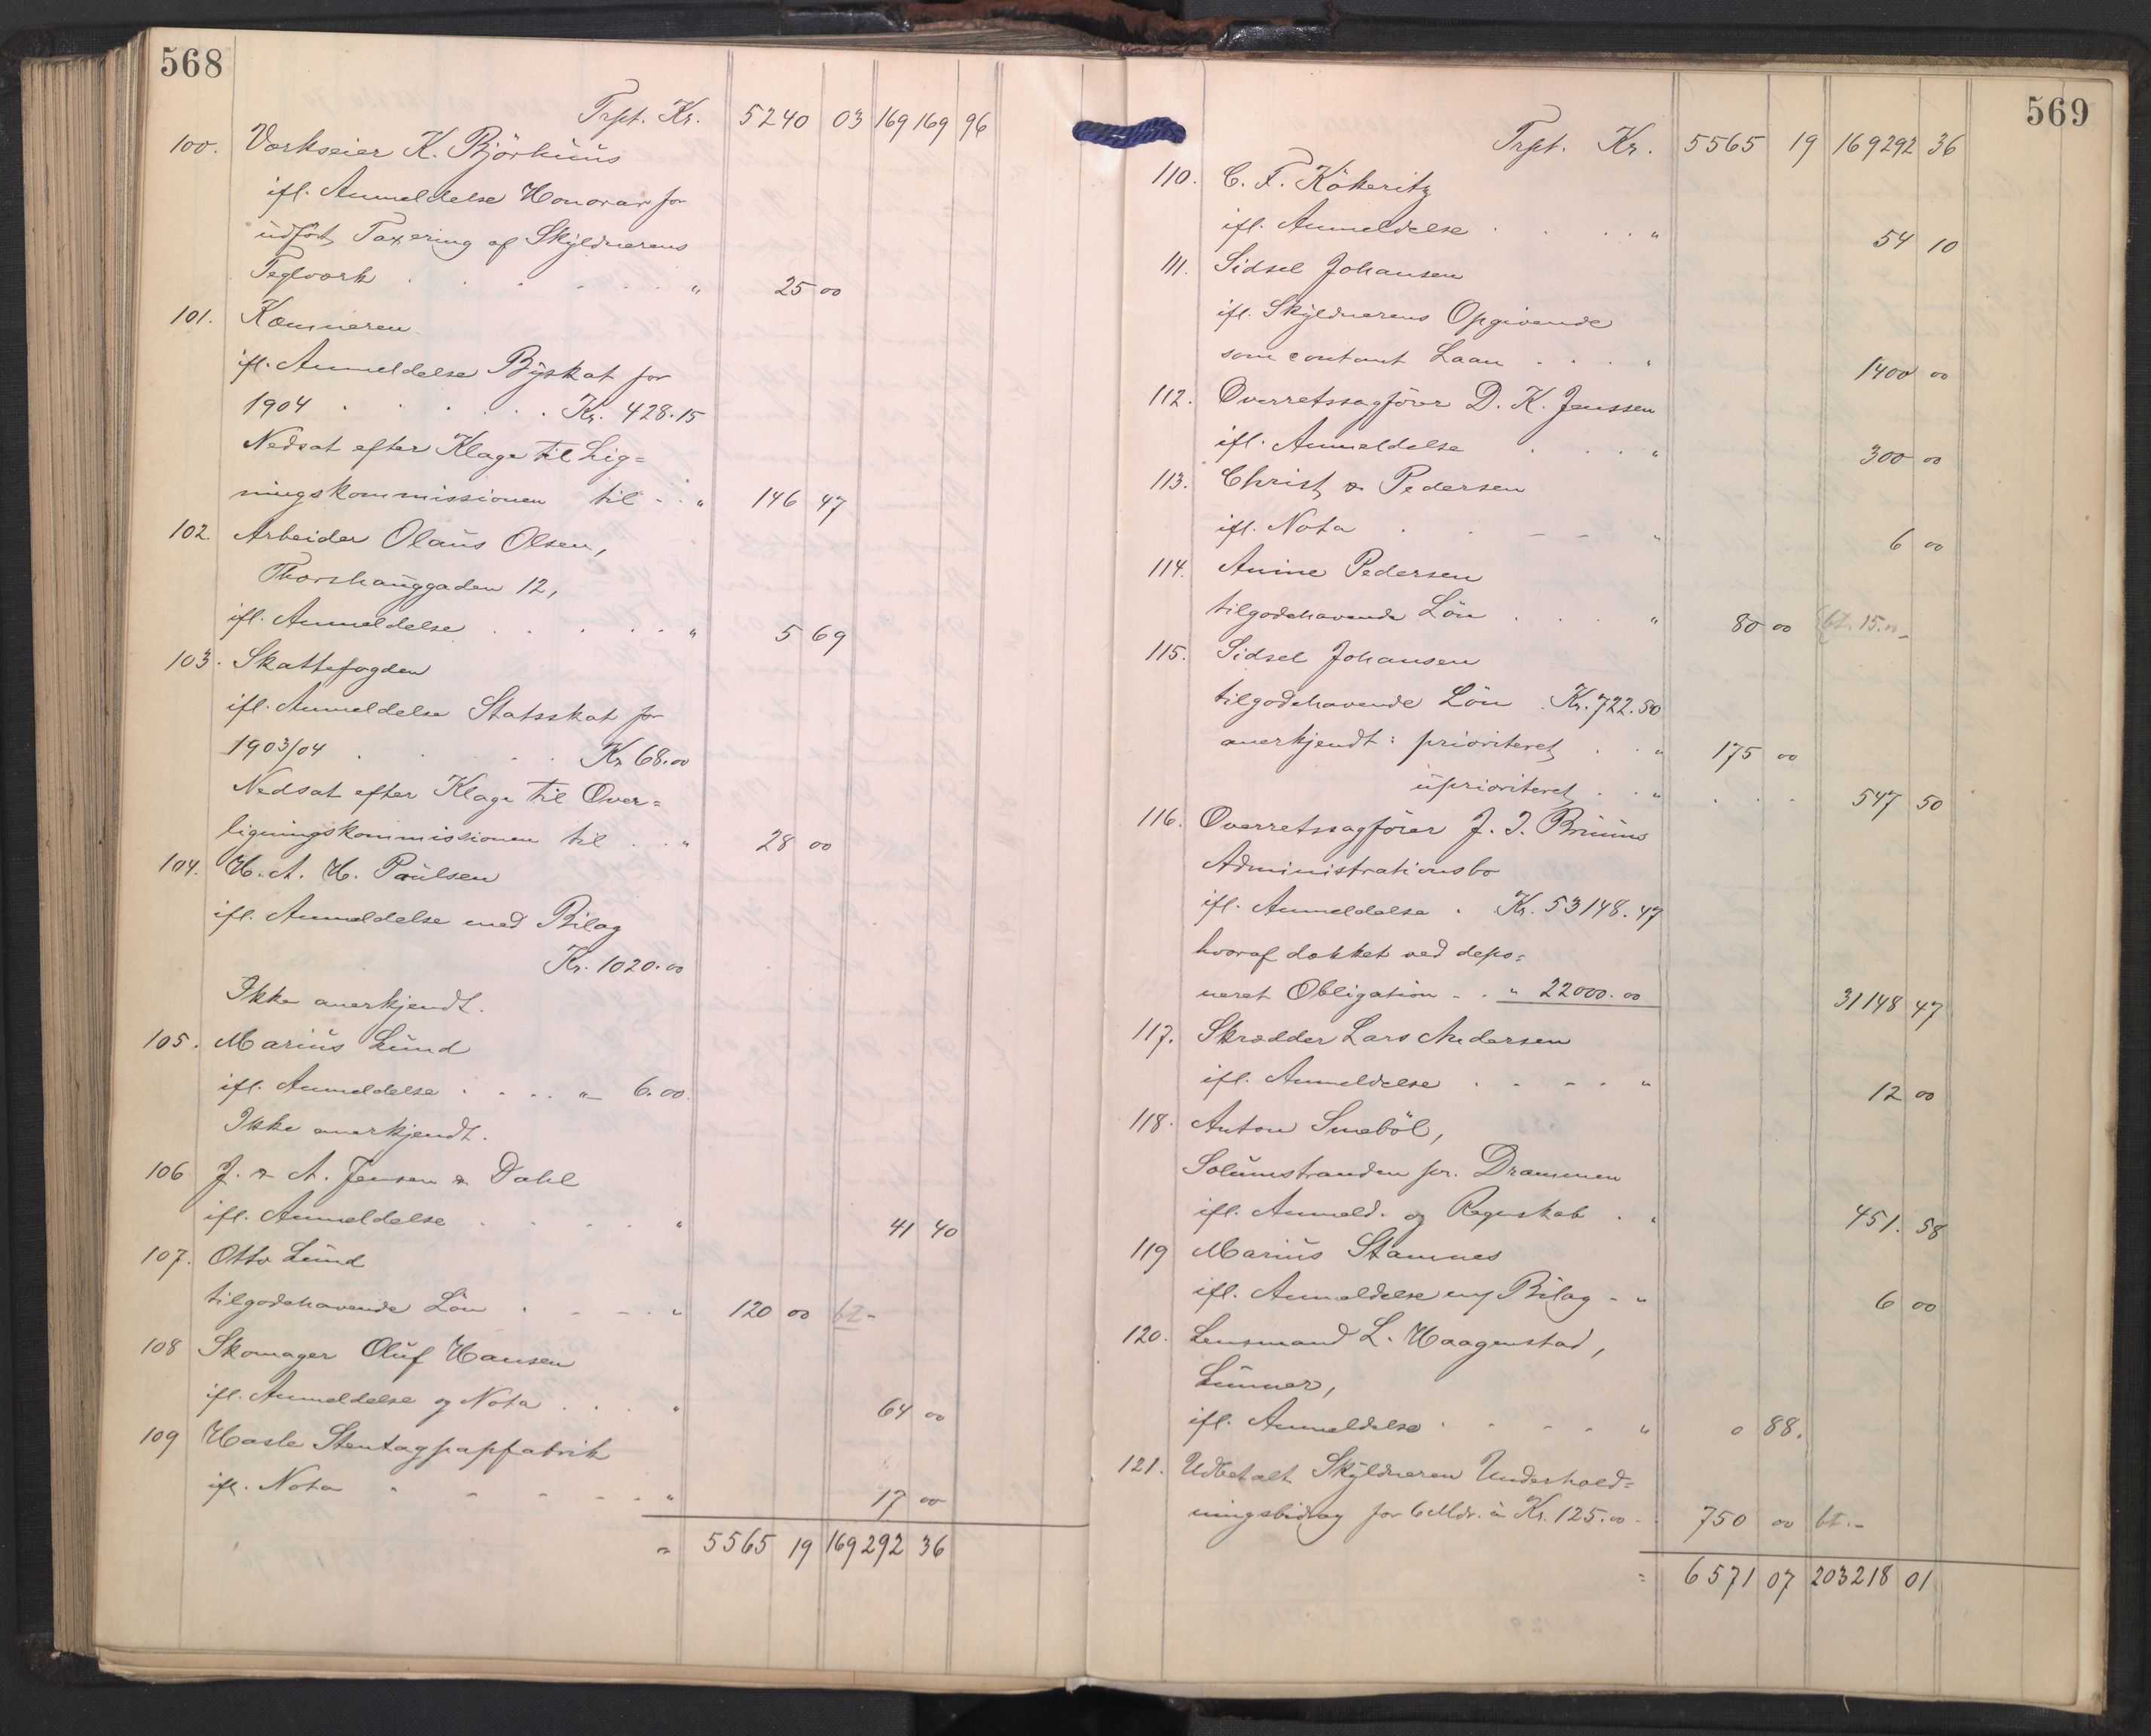 568
Trpt. Kr. 5240 03 169169 96
100. Værkseier K. Björhuus
ifl. Anmeldelse Honorar for
udført Taxering af Skyldnerens
Teglværk . . . . . . " 25 00
101. Kæmneren
ifl. Anmeldelse Byskat for
1904 . . . . . . Kr. 428.15
Nedsat efter Klage til Lig=
ningskommissionen til - . " 146 47
102. Arbeider Olaus Olsen,
Thorshauggaden 12,
ifl. Anmeldelse . . . . . " 5 69
103. Skattefogden
ifl. Anmeldelse Statsskat for
1903/04 . . . . . Kr 68.00
Nedsat efter Klage til Over=
ligningskommissionen til . . " 28 00
104. H. A. H. Paulsen
ifl. Anmeldelse med Bilag
Kr. 1020.00
Ikke anerkjendt.
105. Marius Lund
ifl. Anmeldelse . . . . " 6.00.
Ikke anerkjendt.
106 J. & A. Jensen & Dahl
ifl. Anmeldelse . . . . " 41 40
107. Otto Lund
tilgodehavende Løn . - - - . " 120 00 bt.-
108 Skomager Oluf Hansen
ifl. Anmeldelse og Nota . . . " 64 00
109 Hasle Stentagpapfabrik
ifl. Nota - - - - - . " 17 00
= 5565 19 169292 36
569
Trpt. Kr. 5565 19 169292 36
110. C. F. Kökeritz
ifl. Anmeldelse . . . . " 54 10
111. Sidsel Johansen
ifl. Skyldnerens Opgivende
som contant Laan . . . . " 1400 00
112. Overretssagfører D. K. Jenssen
ifl. Anmeldelse . . . " 300 00
113. Christ. & Pedersen
ifl. Nota . . - - " 6 00
114. Anine Pedersen
tilgodehavende Løn . . . " 80 00 (bt. 15.00-
115. Sidsel Johansen
tilgodehavende Løn . Kr. 722.50
anerkjendt: prioriteret . . " 175 00
uprioriteret . . " . . . 547 50
116. Overretssagfører J. J. Bruuns
Administrationsbo
ifl. Anmeldelse . Kr. 53148.47
hvoraf dækket ved depo=
neret Obligation - . " 22000.00 31148 47
117. Skrædder Lars Andersen
ifl. Anmeldelse . - - . " 12 00
118. Anton Smeböl,
Solumstranden pr. Drammen
ifl. Anmeld. og Regnskab . " 451.58
119 Marius Stamnes
ifl. Anmeldelse m/ Bilag - " 6 00
120. Lensmand L. Haagenstad,
Lunner,
ifl. Anmeldelse . - - - " 0 88.
121. Udbetalt Skyldneren Underhold=
ningsbidrag for 6 Mdr. à Kr. 125.00 - 750 00 bt.-
= 6571 07 203218 01